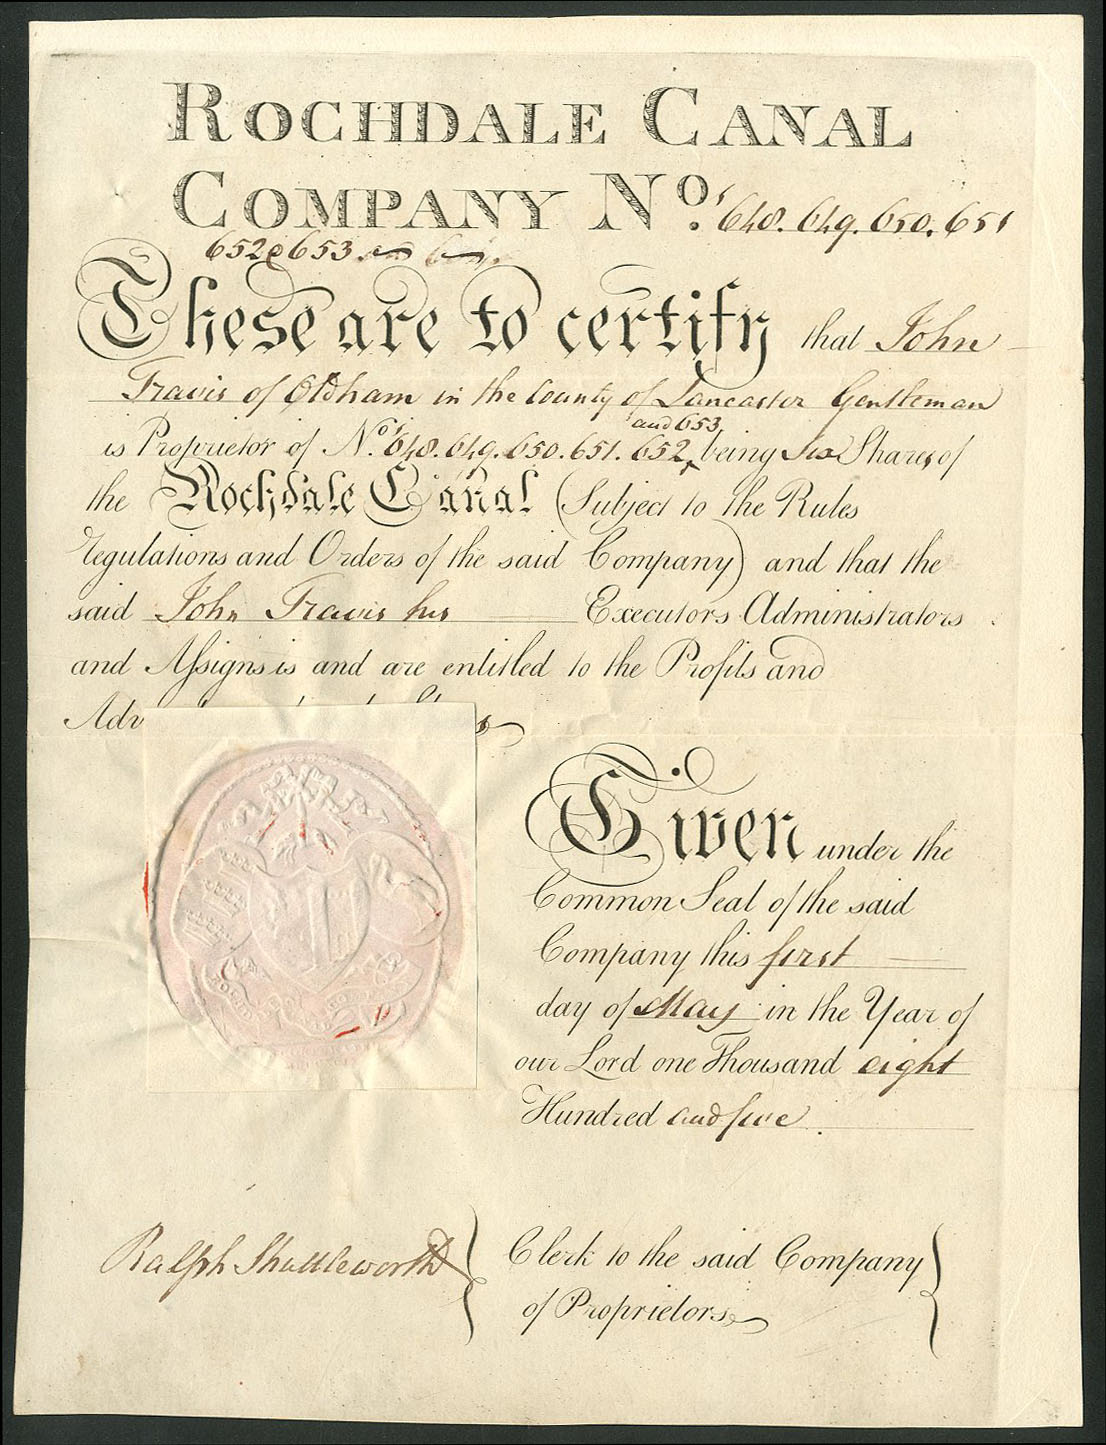 ROCHDALE CANAL
COMPANY Nos. 648. 649. 650. 651
652 & 653
These are to certify that John
Travis of Oldham in the County of Lancaster Gentleman
and 653
is Proprietor of Nos. 648. 649. 650. 651. 652 ‸ being Six Shares of
the Rochdale Canal (Subject to the Rules
regulations and Orders of the said Company) and that the
said John Travis his Executors Administrators
and Assigns is and are entitled to the Profits and
Adv
Given under the
Common Seal of the said
Company this first
day of May in the Year of
our Lord one Thousand eight
Hundred and five.
Ralph Shuttleworth } Clerk to the said Company }
of Proprietors